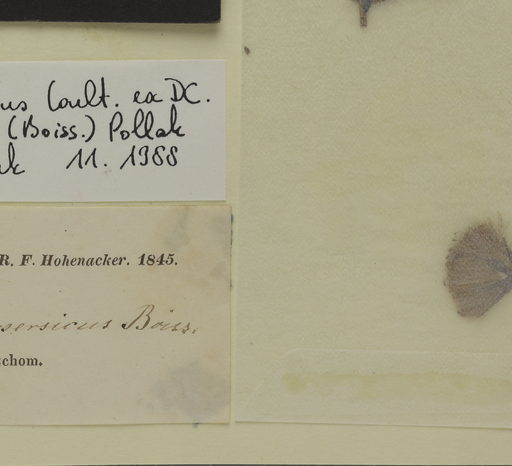 us Coult. ex DC.
(Boiss.) Pollak
ak 11. 1988
R. F. Hohenacker. 1845.
persicus Boiss.
schom.